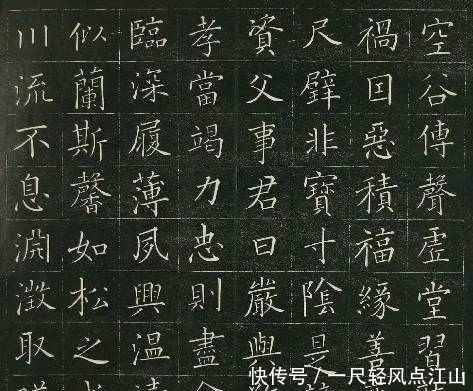 空谷傳聲虛堂習
禍囙惡積福緣善
尺璧非寶寸陰是
資父事君曰嚴與
孝當竭力忠則盡
臨深履薄夙興温
似蘭斯馨如松之
川流不息淵澂取
快传号/一尺轻风点江山